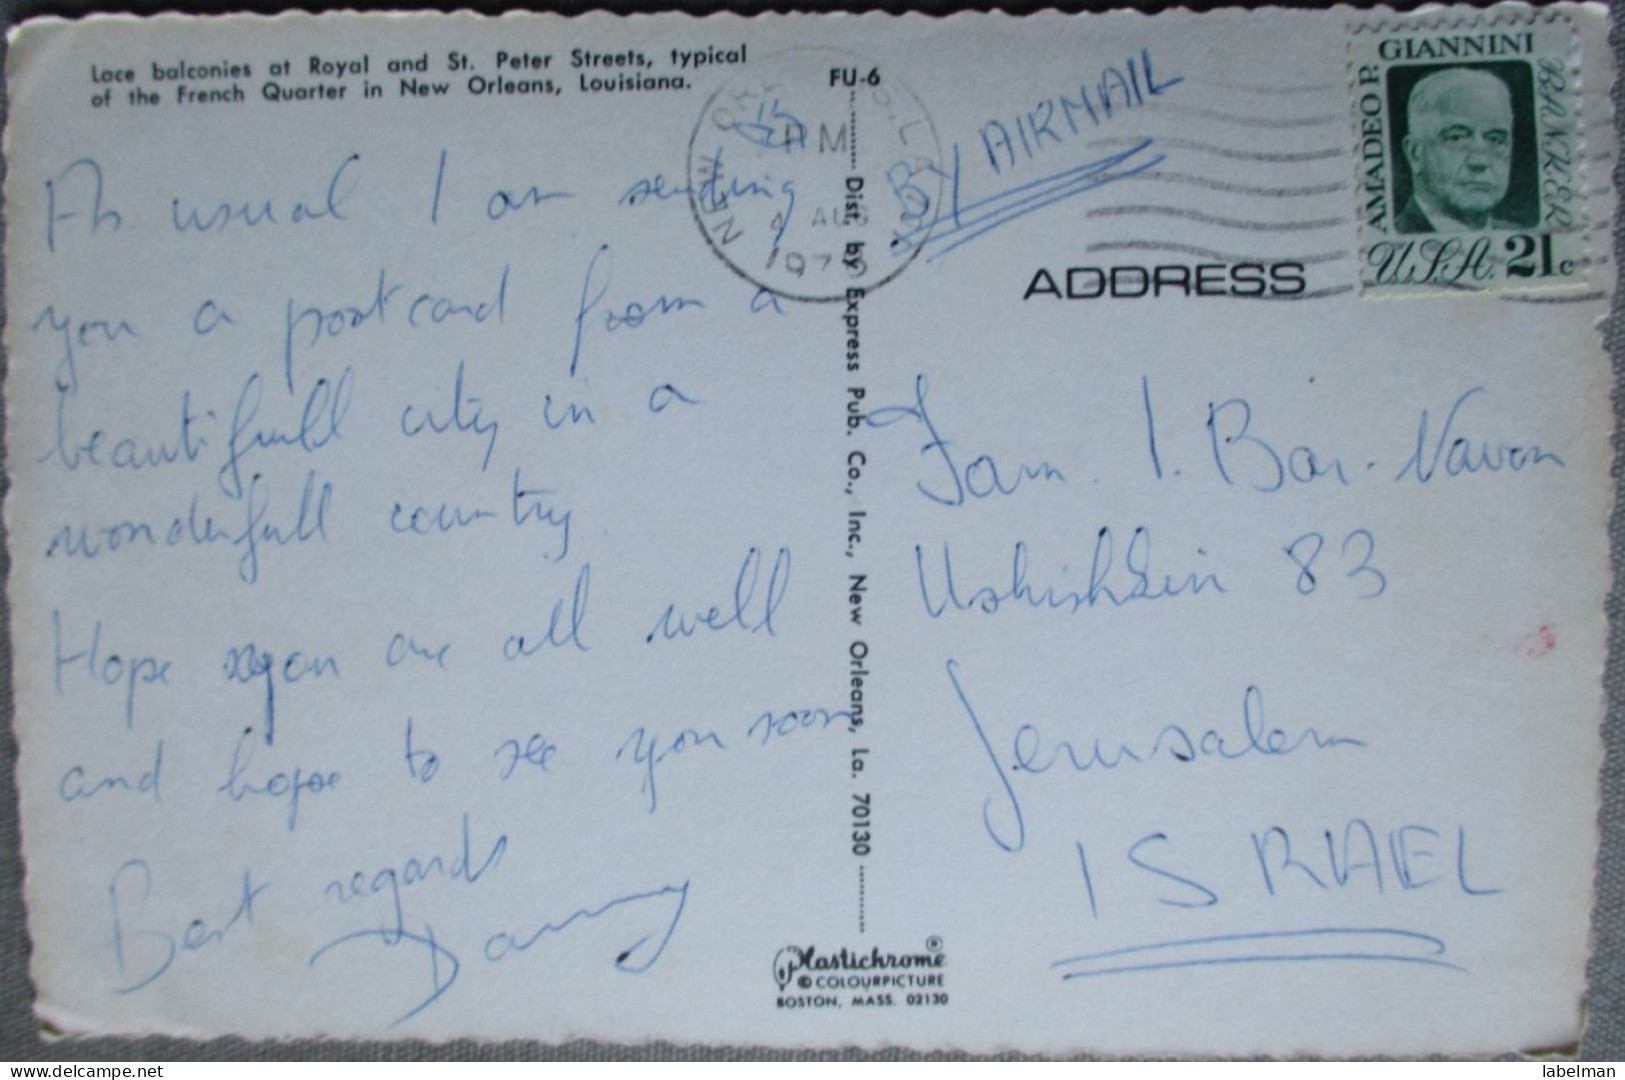 Lace balconies at Royal and St. Peter Streets, typical
of the French Quarter in New Orleans, Louisiana.
FU-6
As usual I am sending
you a postcard from a
beautifull city in a
wonderfull country.
Hope you are all well
and hope to see you soon
Best regards
Danny
Dist. by Express Pub. Co., Inc., New Orleans, La. 70130
Plastichrome®
© COLOURPICTURE
BOSTON, MASS. 02130
NEW ORL
PM
4 AUG
BY AIRMAIL
AMADEO P. GIANNINI BANKER
U.S.A. 21c
ADDRESS
Fam. I. Bar-Navon
Ushishkin 83
Jerusalem
ISRAEL
labelman